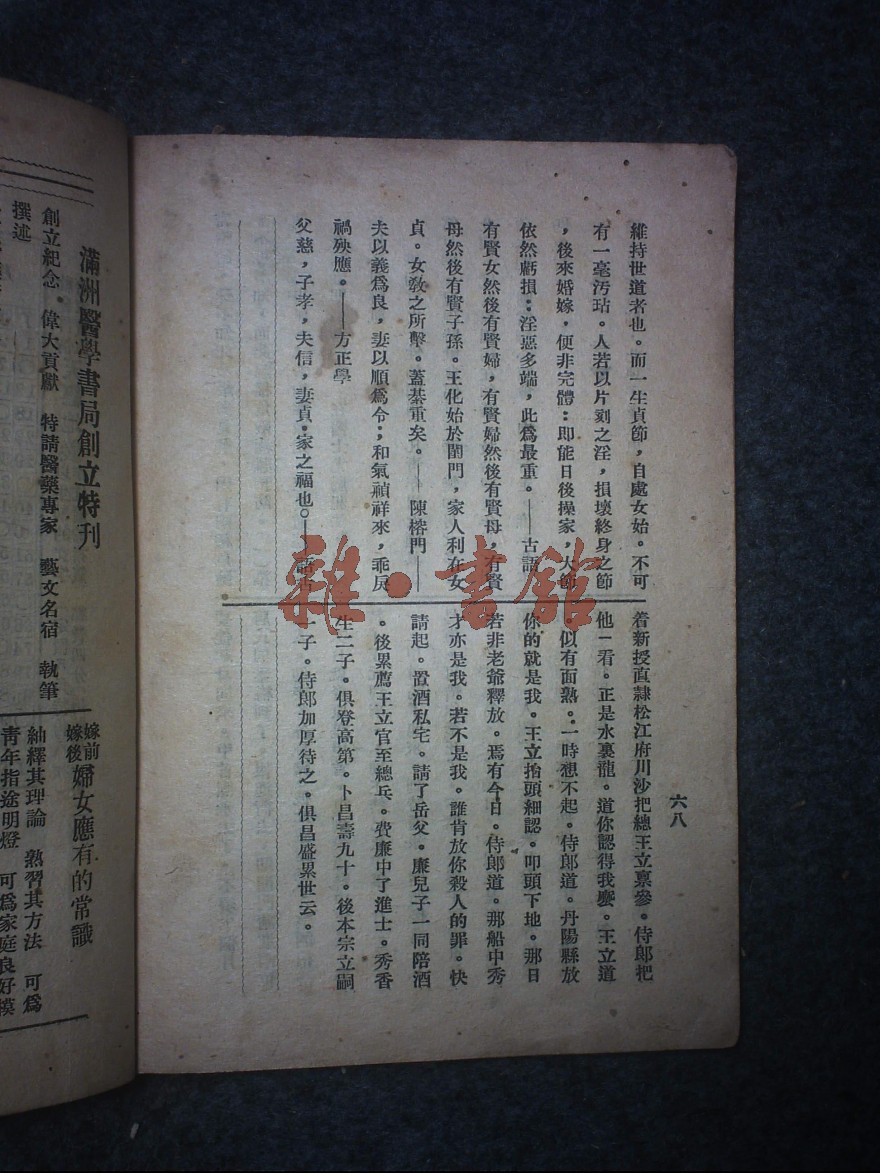 六八
維持世道者也。而一生貞節，自處女始。不可
有一毫汚玷。人若以片刻之淫，損壞終身之節
，後來婚嫁，便非完體：即能日後操家，大節
依然虧損：淫惡多端，此爲最重。——古語
有賢女然後有賢婦，有賢婦然後有賢母，有賢
母然後有賢子孫。王化始於閨門，家人利在女
貞。女敎之所繫。蓋綦重矣。——陳榕門——
夫以義爲良，妻以順爲令；和氣禎祥來，乖戾
禍殃應。——方正學
父慈，子孝，夫信，妻貞。家之福也。——
着新授直隷松江府川沙把總王立禀參。侍郎把
他一看。正是水裏龍。道你認得我麽。王立道
。似有面熟。一時想不起。侍郎道。丹陽縣放
你的就是我。王立抬頭細認。叩頭下地。那日
若非老爺釋放。焉有今日。侍郎道。那船中秀
才亦是我。若不是我。誰肯放你殺人的罪。快
請起。置酒私宅。請了岳父。廉兒子一同陪酒
。後累薦王立官至總兵。費廉中了進士。秀香
生二子。俱登高第。卜昌壽九十。後本宗立嗣
一子。侍郎加厚待之。俱昌盛累世云。
滿洲醫學書局創立特刊
創立紀念。偉大貢獻　特請醫藥專家　藝文名宿　執筆
撰述
嫁前
嫁後　婦女應有的常識
紬繹其理論　熟習其方法　可爲
靑年指途明燈　可爲家庭良好模
雜·書館